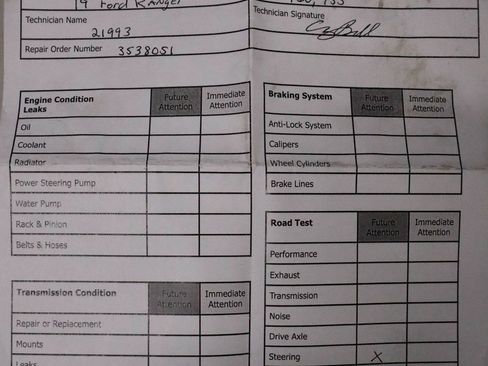 Ford Ranger
Technician Name
21993
Technician Signature
Repair Order Number 3538051
Engine Condition
Leaks
Future Attention
Immediate Attention
Oil
Coolant
Radiator
Power Steering Pump
Water Pump
Rack & Pinion
Belts & Hoses
Transmission Condition
Future Attention
Immediate Attention
Repair or Replacement
Mounts
Leaks
Braking System
Future Attention
Immediate Attention
Anti-Lock System
Calipers
Wheel Cylinders
Brake Lines
Road Test
Future Attention
Immediate Attention
Performance
Exhaust
Transmission
Noise
Drive Axle
Steering X